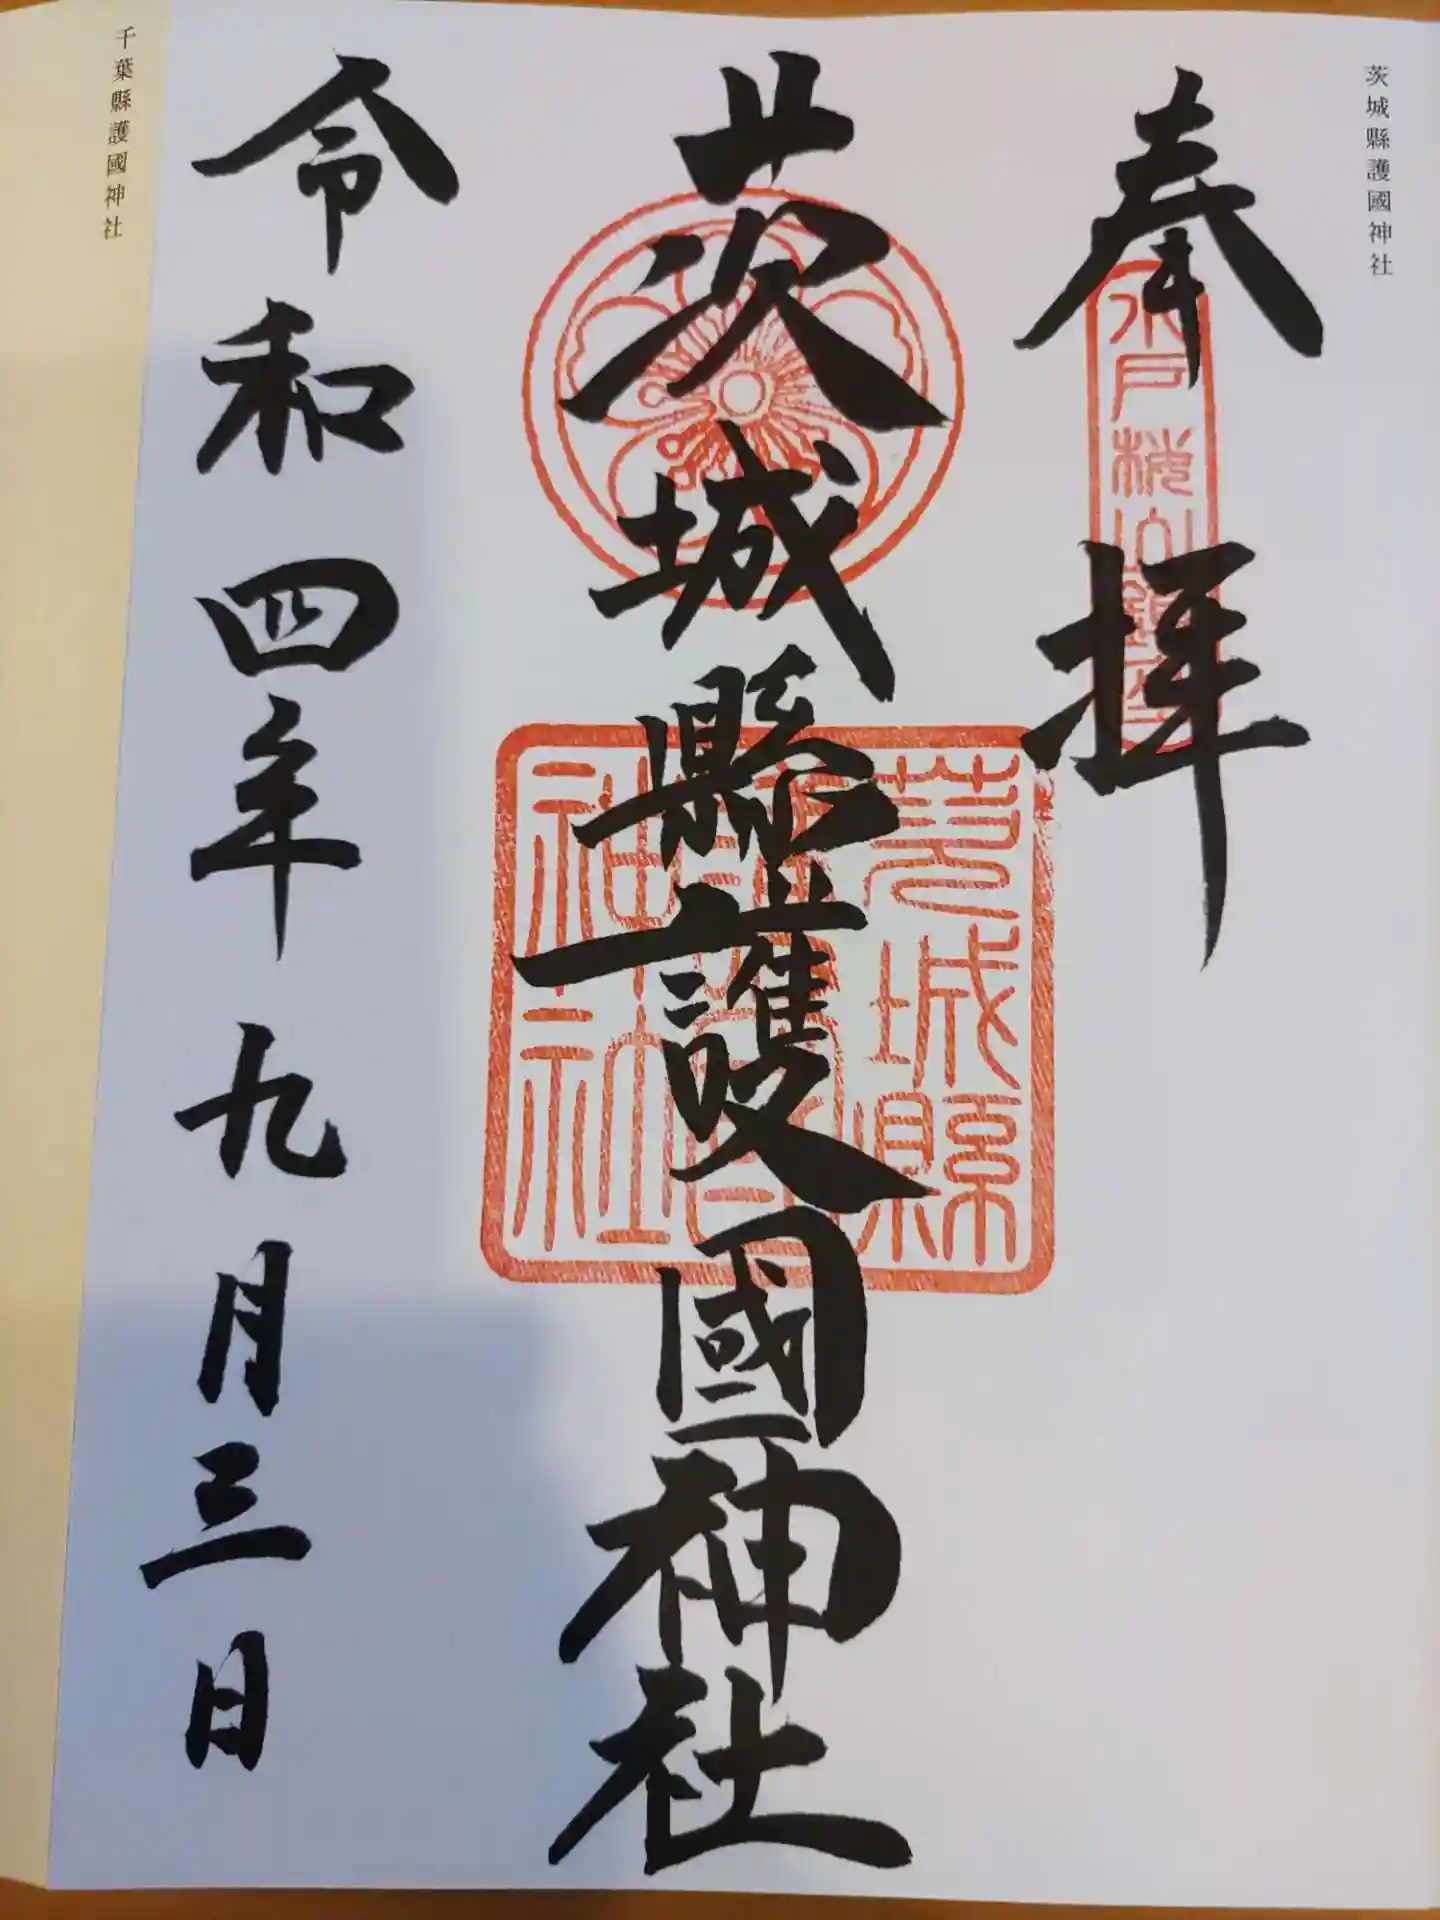 茨城縣護國神社
奉拝
水戸桜山鎮座
茨城縣護國神社
茨城縣
神社
令和四年九月三日
千葉縣護國神社